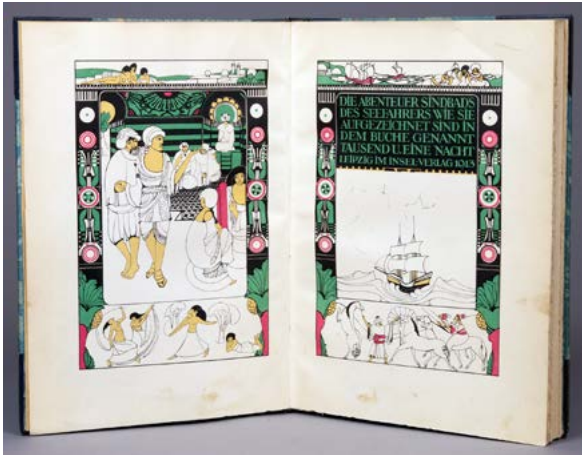 DIE ABENTEUER SINDBADS
DES SEEFAHRERS WIE SIE
AUFGEZEICHNET SIND IN
DEM BUCHE GENANNT
TAUSEND U. EINE NACHT
LEIPZIG IM INSEL VERLAG 1013